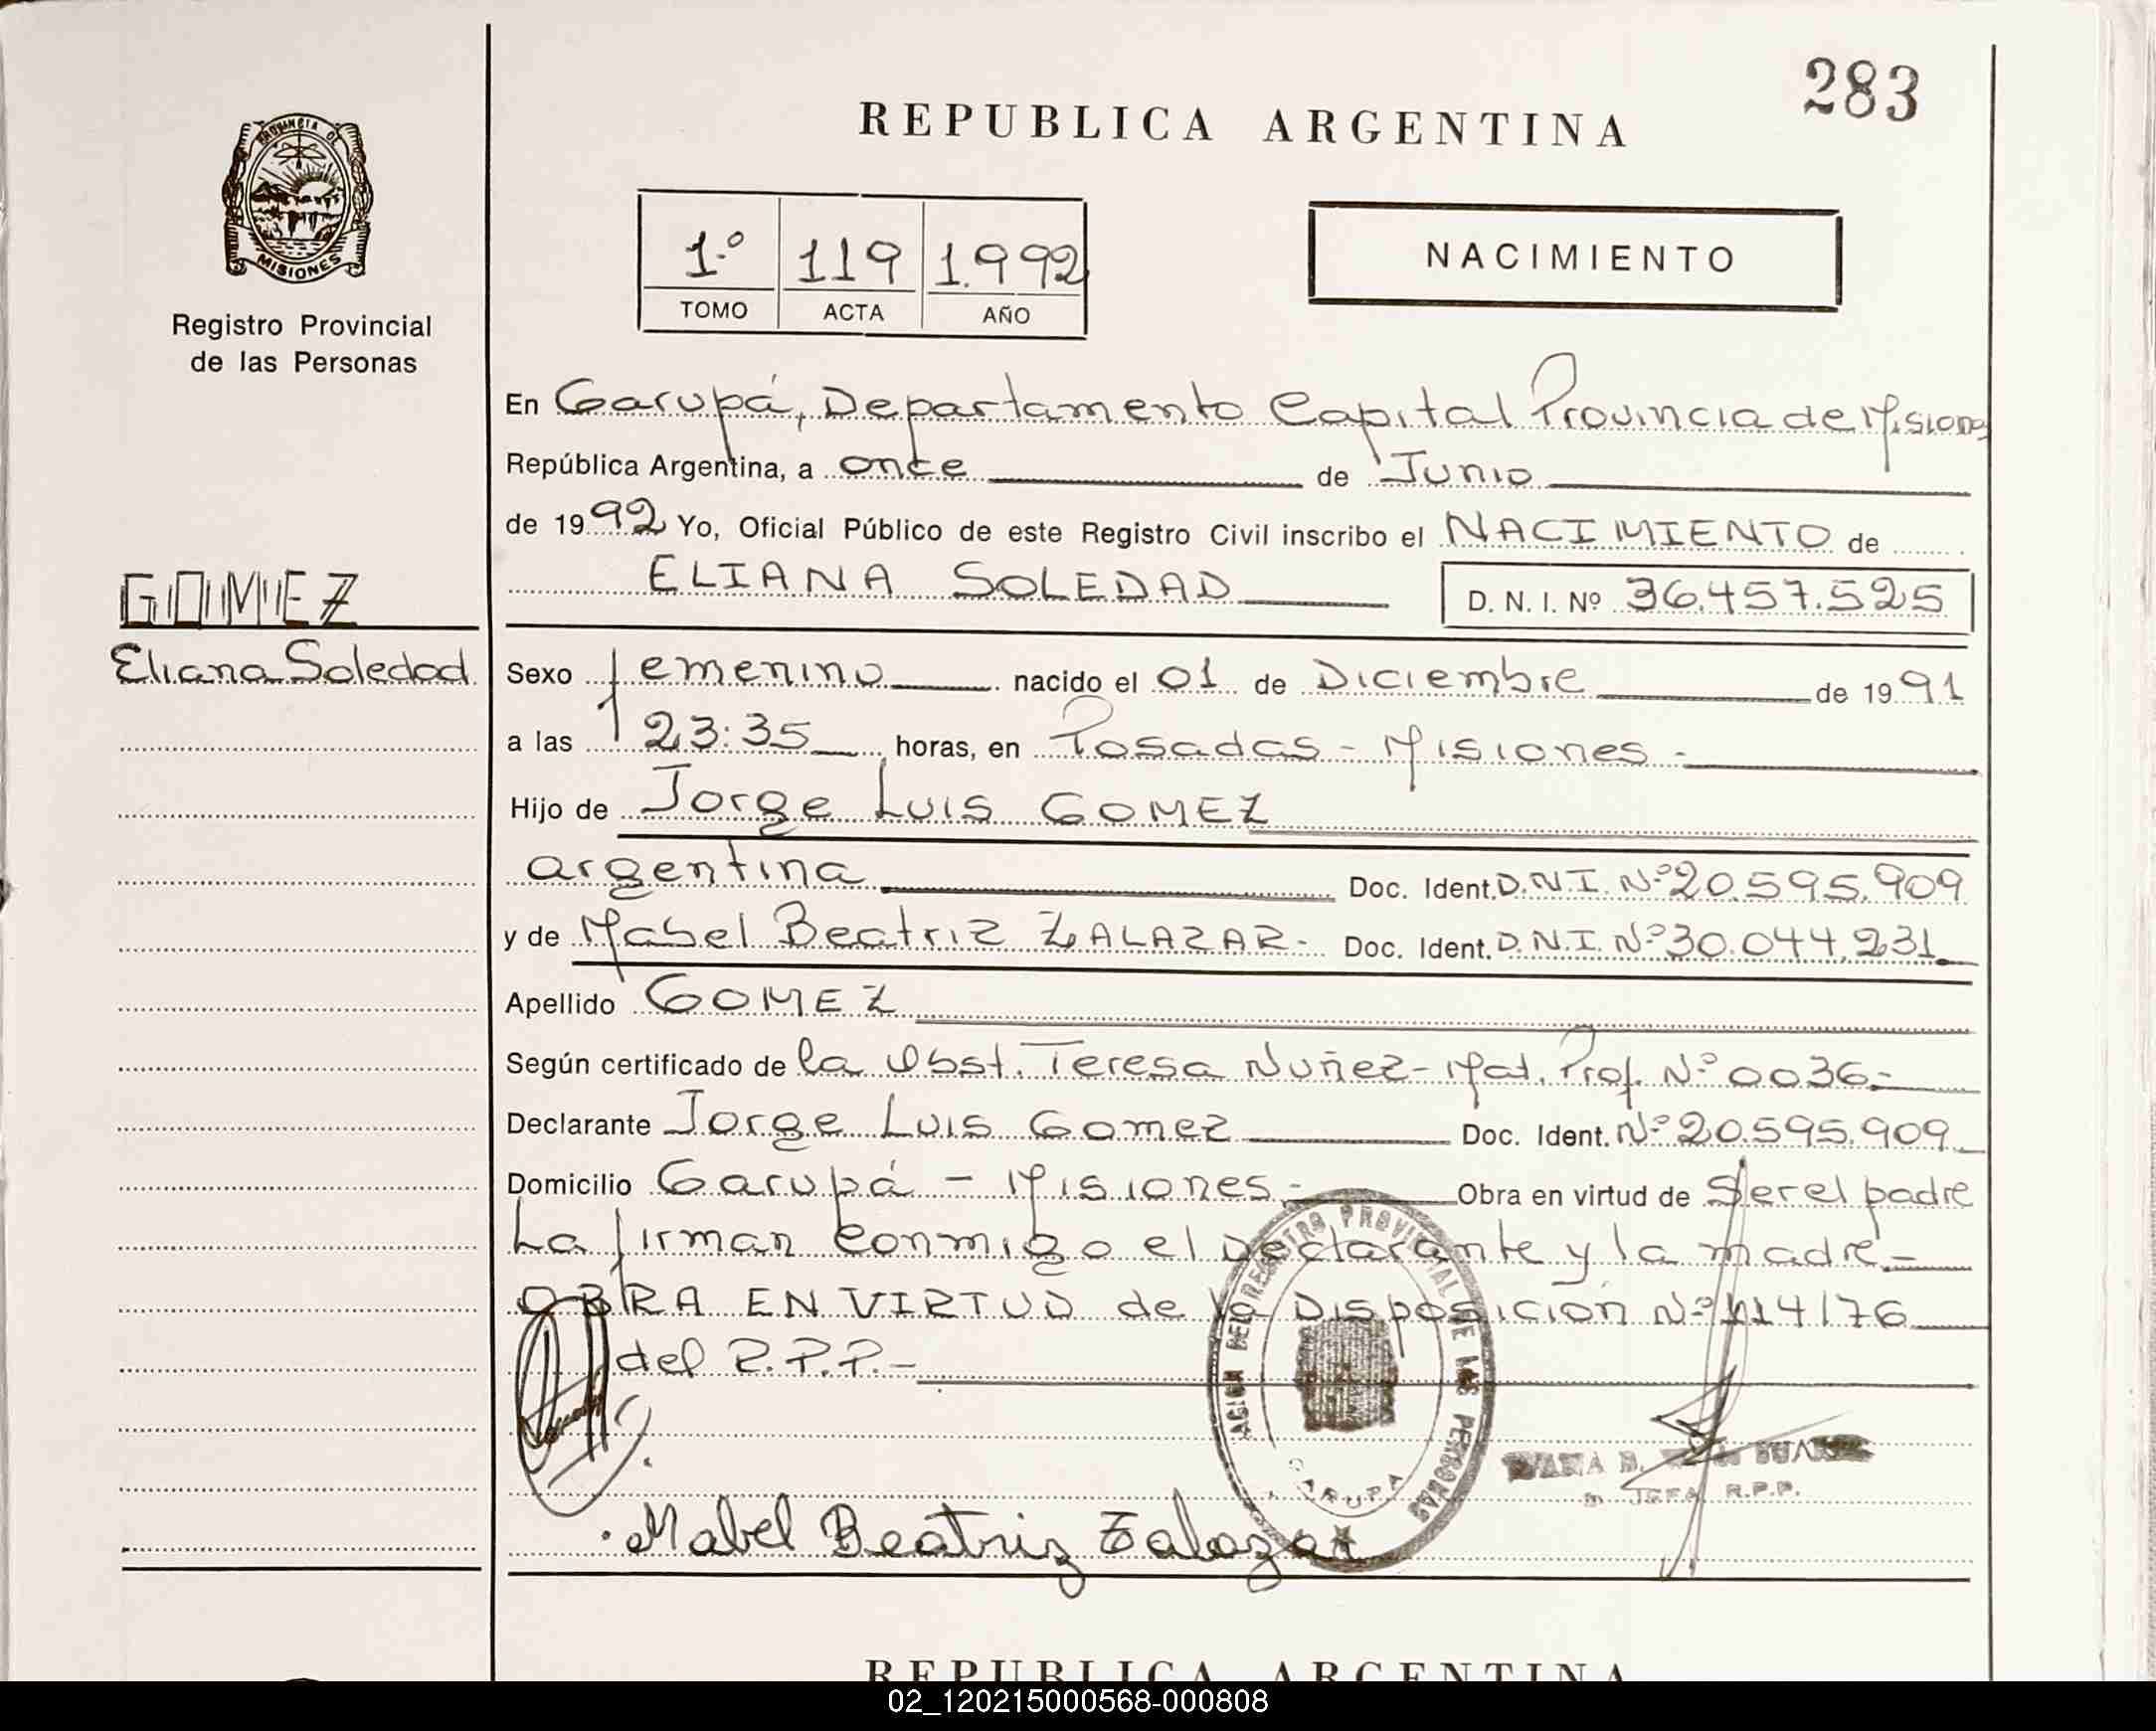 283
REPUBLICA ARGENTINA
PROVINCIA DE
MISIONES
Registro Provincial
de las Personas
1.º 119 1.992
TOMO ACTA AÑO
NACIMIENTO
En Garupá, Departamento Capital Provincia de Misiones
República Argentina, a once de Junio
de 1992 Yo, Oficial Público de este Registro Civil inscribo el NACIMIENTO de
ELIANA SOLEDAD D. N. I. Nº 36.457.525
GOMEZ
Eliana Soledad
Sexo femenino nacido el 01 de Diciembre de 1991
a las 23:35 horas, en Posadas - Misiones -
Hijo de Jorge Luis GOMEZ
argentina Doc. Ident. D.N.I. Nº 20.595.909
y de Mabel Beatriz ZALAZAR - Doc. Ident. D.N.I. Nº 30.044.231
Apellido GOMEZ
Según certificado de la Obst. Teresa Nuñez - Mat. Prof. Nº 0036 -
Declarante Jorge Luis Gomez Doc. Ident. Nº 20.595.909
Domicilio Garupá - Misiones - Obra en virtud de Ser el padre
La firman conmigo el Declarante y la madre -
OBRA EN VIRTUD de la Disposición Nº 114/76
del R.P.P. -
DEL REGISTRO PROVINCIAL DE LAS PERSONAS
GARUPA
JEFA R.P.P.
Mabel Beatriz Zalazar
REPUBLICA ARGENTINA
02_120215000568-000808